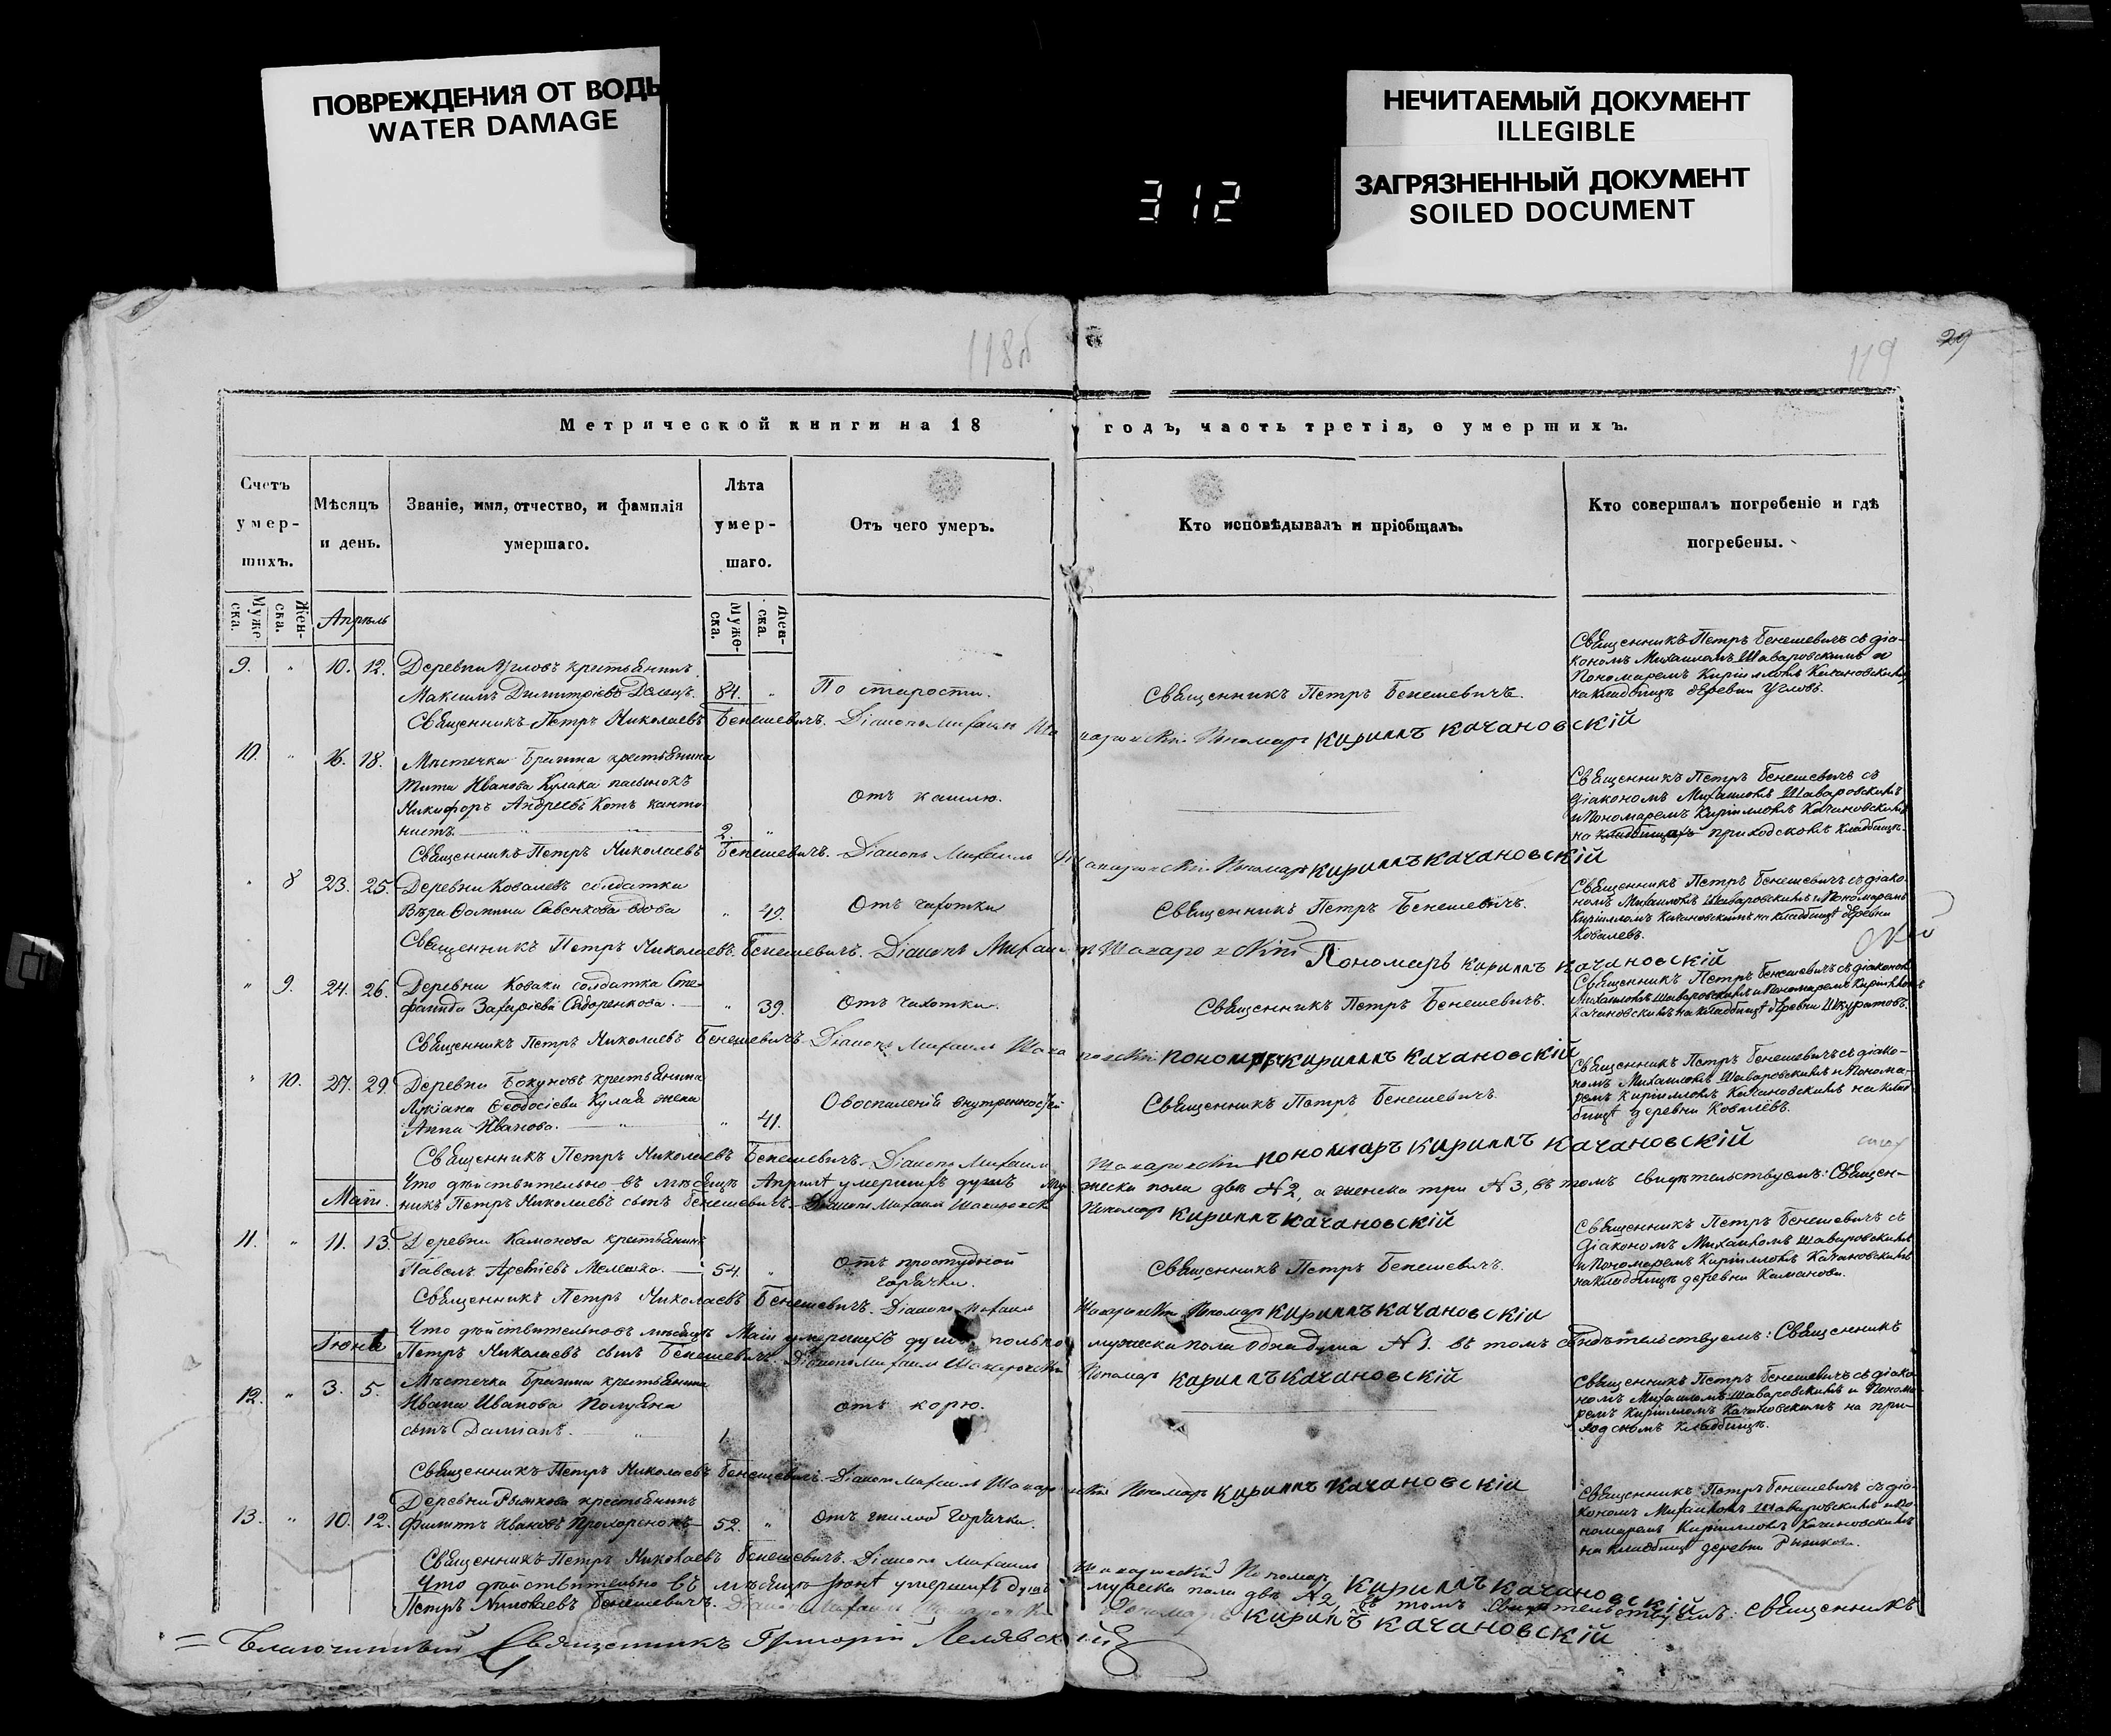 ПОВРЕЖДЕНИЯ ОТ ВОДЫ
WATER DAMAGE
НЕЧИТАЕМЫЙ ДОКУМЕНТ
ILLEGIBLE
ЗАГРЯЗНЕННЫЙ ДОКУМЕНТ
SOILED DOCUMENT
312
118б
119
29
Метрической книги на 18 годъ, часть третія, о умершихъ.
Счетъ умер-
шихъ.
Мѣсяцъ
и день.
Званіе, имя, отчество, и фамилія
умершаго.
Лѣта
умер-
шаго.
Отъ чего умеръ.
Кто исповѣдывалъ и пріобщалъ.
Кто совершалъ погребеніе и гдѣ
погребены.
Муже-
ска.
Жен-
ска.
Апрѣль
Муже-
ска.
Жен-
ска.
9. " 10. 12. Деревни Угловъ крестьянинъ
Максимъ Димитріевъ 84. " По старости. Священникъ Петръ Бенешевичъ.
Священникъ Петръ Бенешевичъ съ діа-
кономъ Михаиломъ Шаваровскимъ и
Пономаремъ Кирилломъ Качановскимъ
на кладбищѣ деревни Угловъ.
Священникъ Петръ Николаевъ Бенешевичъ. Діаконъ Михаилъ Пономарь Кириллъ Качановскій
10. " 16. 18. Мѣстечка Брагина крестьянина
Тита Иванова Кулака пасынокъ
Никифоръ Андреевъ Котъ канто-
нистъ. 2. " Отъ кашлю.
Священникъ Петръ Бенешевичъ съ
діакономъ Михаиломъ Шаваровскимъ
и Пономаремъ Кирилломъ Качановскимъ
на приходскомъ кладбищѣ.
Священникъ Петръ Николаевъ Бенешевичъ. Діаконъ Михаилъ Пономарь Кириллъ Качановскій
" 8 23. 25. Деревни Ковалевъ солдатка
Вѣра Фомина Савенкова вдова " 49. Отъ чахотки Священникъ Петръ Бенешевичъ.
Священникъ Петръ Бенешевичъ съ діако-
номъ Михаиломъ Шаваровскимъ и Пономаремъ
Кирилломъ Качановскимъ на кладбищѣ деревни
Ковалевъ.
Священникъ Петръ Николаевъ Бенешевичъ. Діаконъ Михаилъ Пономарь Кириллъ Качановскій
" 9. 24. 26. Деревни Коваки солдатка Сте-
фанида Захаріева Сидоренкова. " 39. Отъ чахотки. Священникъ Петръ Бенешевичъ.
Священникъ Петръ Бенешевичъ съ діакономъ
Михаиломъ Шаваровскимъ и Пономаремъ Кирилломъ
Качановскимъ на кладбищѣ деревни Шкуратовъ.
Священникъ Петръ Николаевъ Бенешевичъ. Діаконъ Михаилъ Пономарь Кириллъ Качановскій
" 10. 27. 29. Деревни Бокуновъ крестьянина
Лукіана Ѳеодосіева Кулая жена
Анна Иванова. " 41. О воспаленія внутренностей Священникъ Петръ Бенешевичъ.
Священникъ Петръ Бенешевичъ съ діако-
номъ Михаиломъ Шаваровскимъ и Понома-
ремъ Кирилломъ Качановскимъ на клад-
бищѣ деревни Ковалёвъ.
Священникъ Петръ Николаевъ Бенешевичъ. Діаконъ Михаилъ Пономарь Кириллъ Качановскій
Что дѣйствительно въ мѣсяцѣ Априлѣ умершихъ душъ мужеска пола двѣ №2, а женска три №3, въ томъ свидѣтельствуемъ: Священ-
никъ Петръ Николаевъ сынъ Бенешевичъ. Діаконъ Михаилъ Пономарь Кириллъ Качановскій
Маій.
11. " 11. 13. Деревни Каманова крестьянинъ
Павелъ Арсеніевъ Мелешко. 54. " Отъ простудной
горячки. Священникъ Петръ Бенешевичъ.
Священникъ Петръ Бенешевичъ съ
діакономъ Михаиломъ Шаваровскимъ
и Пономаремъ Кирилломъ Качановскимъ
на кладбищѣ деревни Каманова.
Священникъ Петръ Николаевъ Бенешевичъ. Діаконъ Михаилъ Пономарь Кириллъ Качановскій
Что дѣйствительно въ мѣсяцѣ Маіи умершихъ душъ только мужеска пола одна душа №1. въ томъ свидѣтельствуемъ: Священникъ
Петръ Николаевъ сынъ Бенешевичъ. Діаконъ Михаилъ Пономарь Кириллъ Качановскій
Іюнь
12. " 3. 5. Мѣстечка Брагина крестьянина
Ивана Иванова Полуяна
сынъ Даміанъ. 1. отъ корю.
Священникъ Петръ Бенешевичъ съ діако-
номъ Михаиломъ Шаваровскимъ и Понома-
ремъ Кирилломъ Качановскимъ на при-
ходскомъ кладбищѣ.
Священникъ Петръ Николаевъ Бенешевичъ. Діаконъ Михаилъ Пономарь Кириллъ Качановскій
13. " 10. 12. Деревни Рыжкова крестьянинъ
Филиппъ Ивановъ 52. " Отъ гнилой горячки.
Священникъ Петръ Бенешевичъ съ діа-
кономъ Михаиломъ Шаваровскимъ и По-
номаремъ Кирилломъ Качановскимъ
на кладбищѣ деревни Рыжкова.
Священникъ Петръ Николаевъ Бенешевичъ. Діаконъ Михаилъ Пономарь Кириллъ Качановскій
Что дѣйствительно въ мѣсяцѣ Іюнѣ умершихъ душъ мужеска пола двѣ №2, въ томъ свидѣтельствуемъ: Священникъ
Петръ Николаевъ Бенешевичъ. Діаконъ Михаилъ Пономарь Кириллъ Качановскій
Благочинный Священникъ Григорій